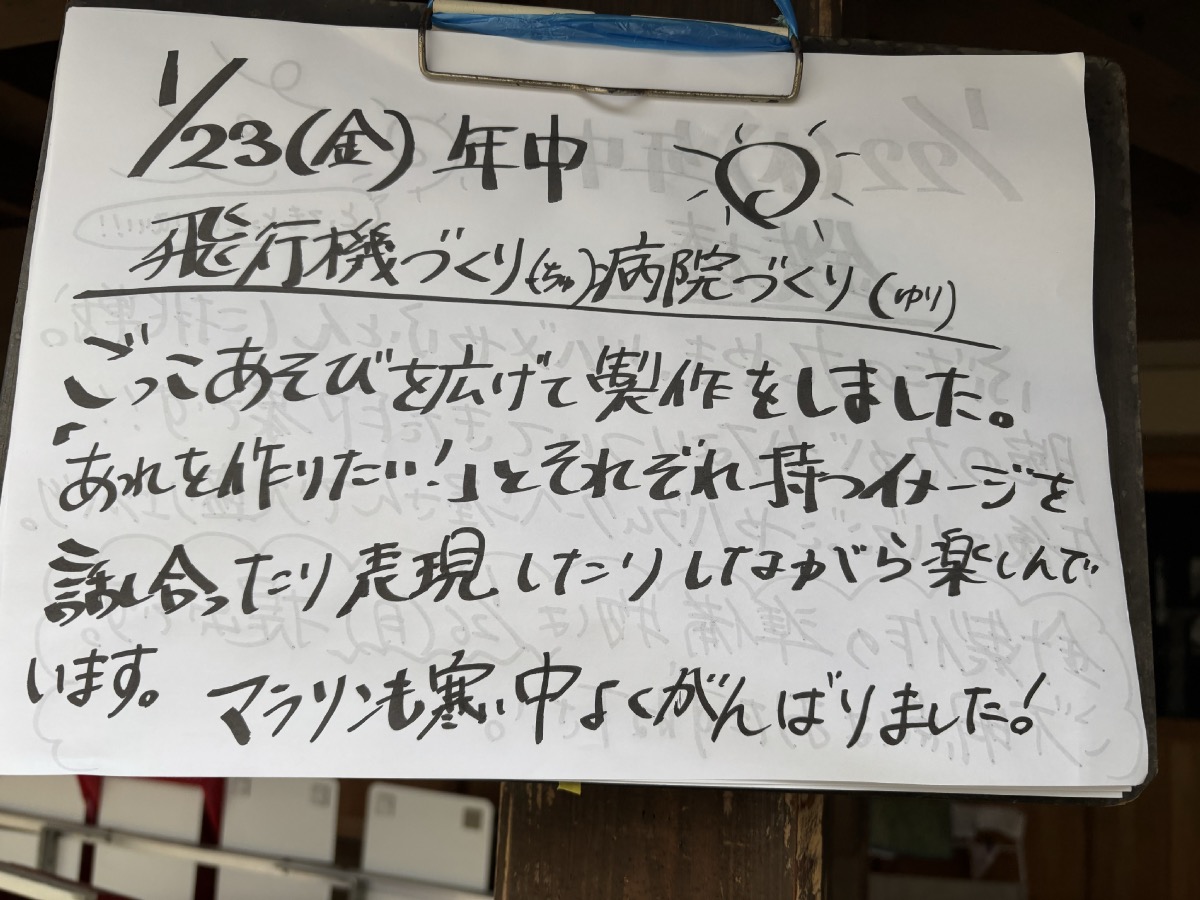 1/23(金) 年中
飛行機づくり(ちゅ):病院づくり(ゆり)
ごっこあそびを広げて製作をしました。
「あれを作りたい!」とそれぞれ持つイメージを
話し合ったり表現したりしながら楽しんで
います。 マラソンも寒い中よくがんばりました!